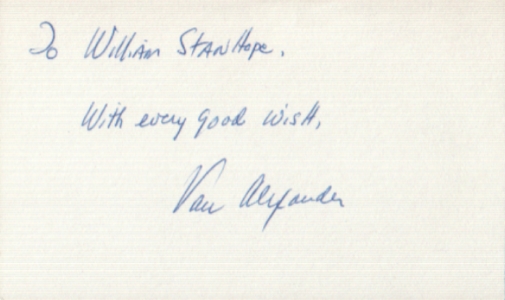 To William Stanhope.
With every good wish,
Van Alexander